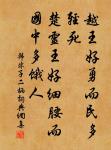 越王好勇而民多
轻死
楚灵王好细腰而
国中多饿人
韩非子二柄词典网集